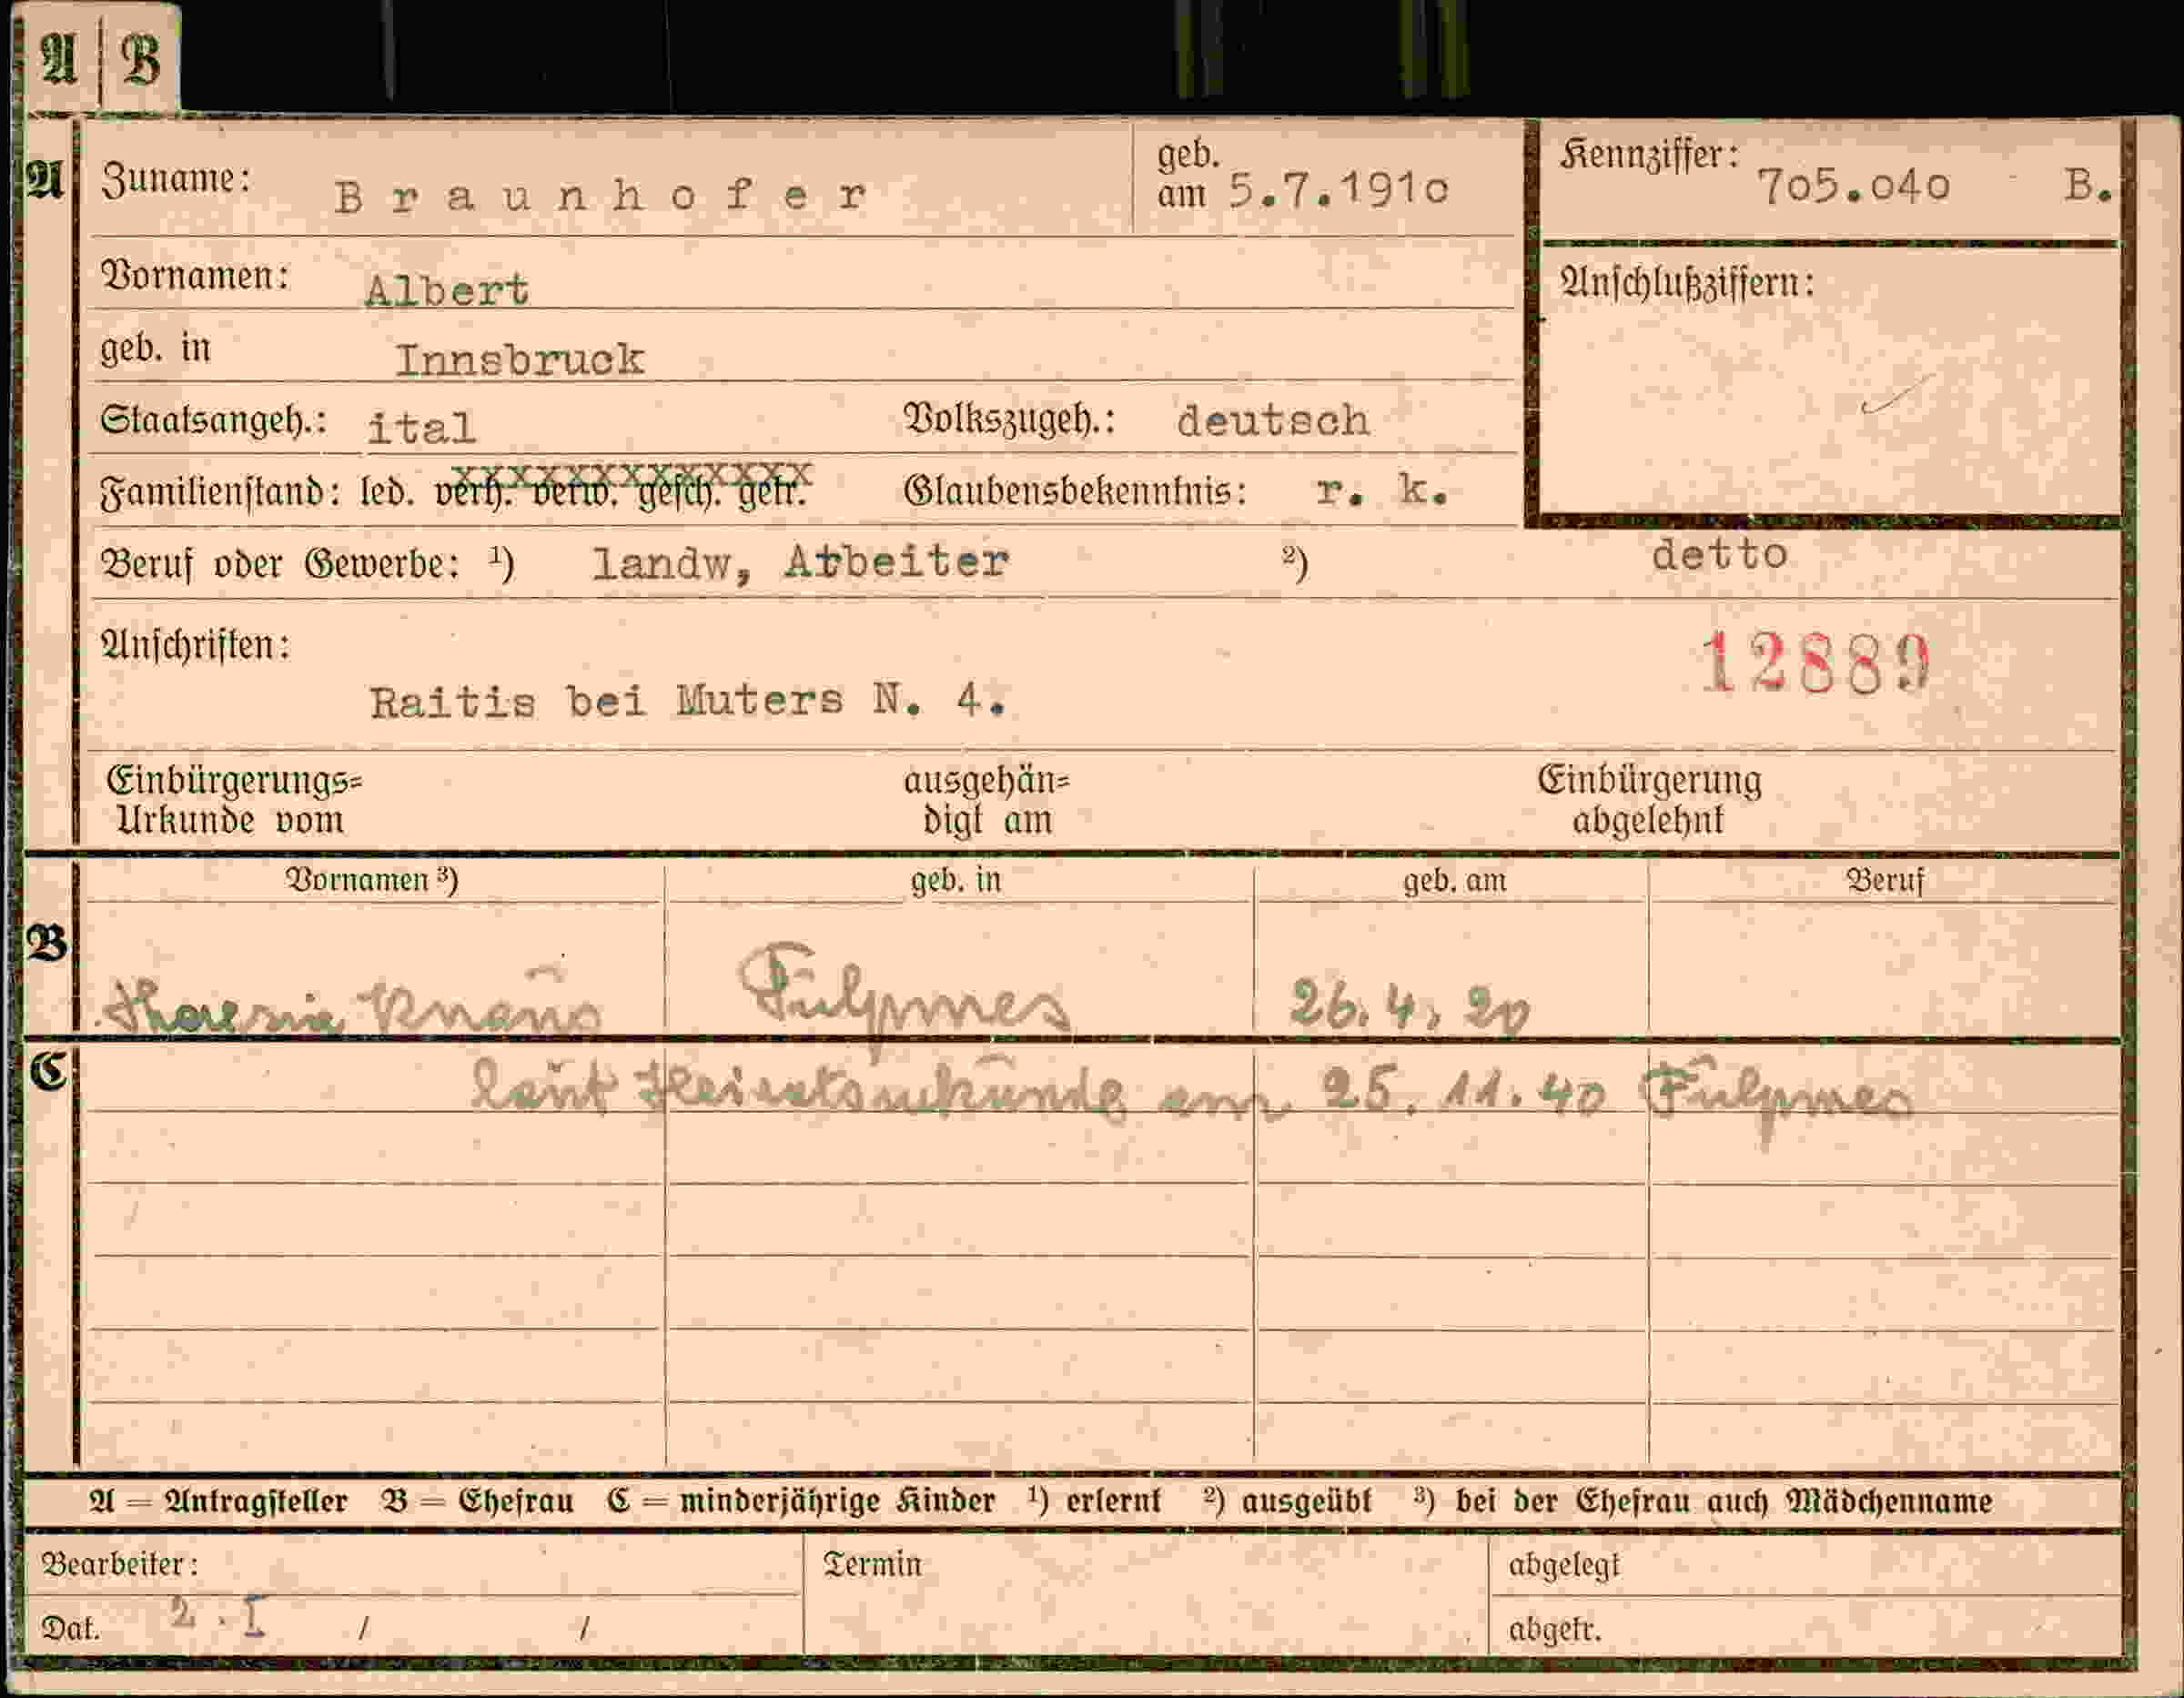 A | B
A Zuname: Braunhofer geb. am 5.7.1910 Kennziffer: 705.040 B.
Vornamen: Albert Anschlußziffern:
geb. in Innsbruck
Staatsangeh.: ital Volkszugeh.: deutsch
Familienstand: led. verh. verw. gesch. getr. Glaubensbekenntnis: r. k.
Beruf oder Gewerbe: ¹) landw, Arbeiter ²) detto
Anschriften: 12889
Raitis bei Muters N. 4.
Einbürgerungs= ausgehän= Einbürgerung
Urkunde vom digt am abgelehnt
Vornamen ³) geb. in geb. am Beruf
B Theresia Knaus Fulpmes 26.4.20
C laut Heiratsurkunde am 25.11.40 Fulpmes
A = Antragsteller B = Ehefrau C = minderjährige Kinder ¹) erlernt ²) ausgeübt ³) bei der Ehefrau auch Mädchenname
Bearbeiter: Termin abgelegt
Dat. 2.I / / abgetr.